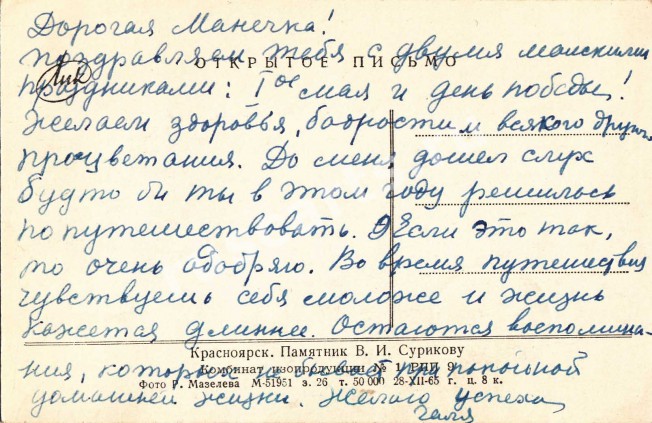 Дорогая Манечка!
поздравляем тебя с двумя майскими
ОТКРЫТОЕ ПИСЬМО
праздниками: 1ое мая и день победы!
Желаем здоровья, бодрости и всякого другого
процветания. До меня дошел слух
будто бы ты в этом году решилась
попутешествовать. Если это так,
то очень одобряю. Во время путешествия
чувствуешь себя моложе и жизнь
кажется длиннее. Остаются воспомина-
Красноярск. Памятник В. И. Сурикову
ния, которых не бывает при покойной
Комбинат изопродукции № 1 РПП 9
Фото Р. Мазелева М-51951 з. 26 т. 50 000 28-XII-65 г. ц. 8 к.
домашней жизни. Желаю успеха
Галя